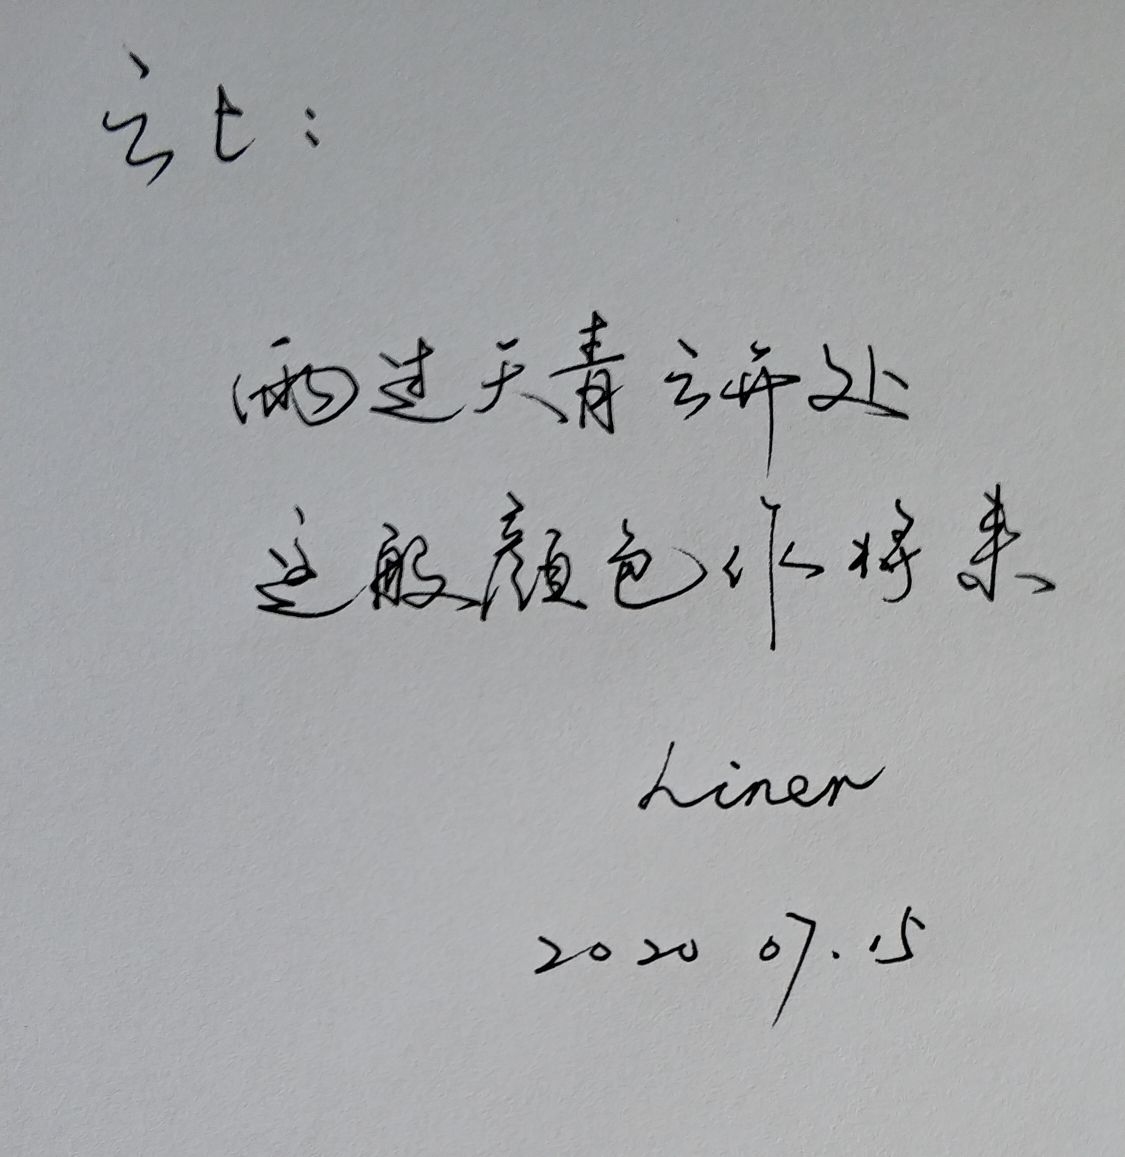 雨过天青云破处
这般颜色作将来
Liner
2020 07.15